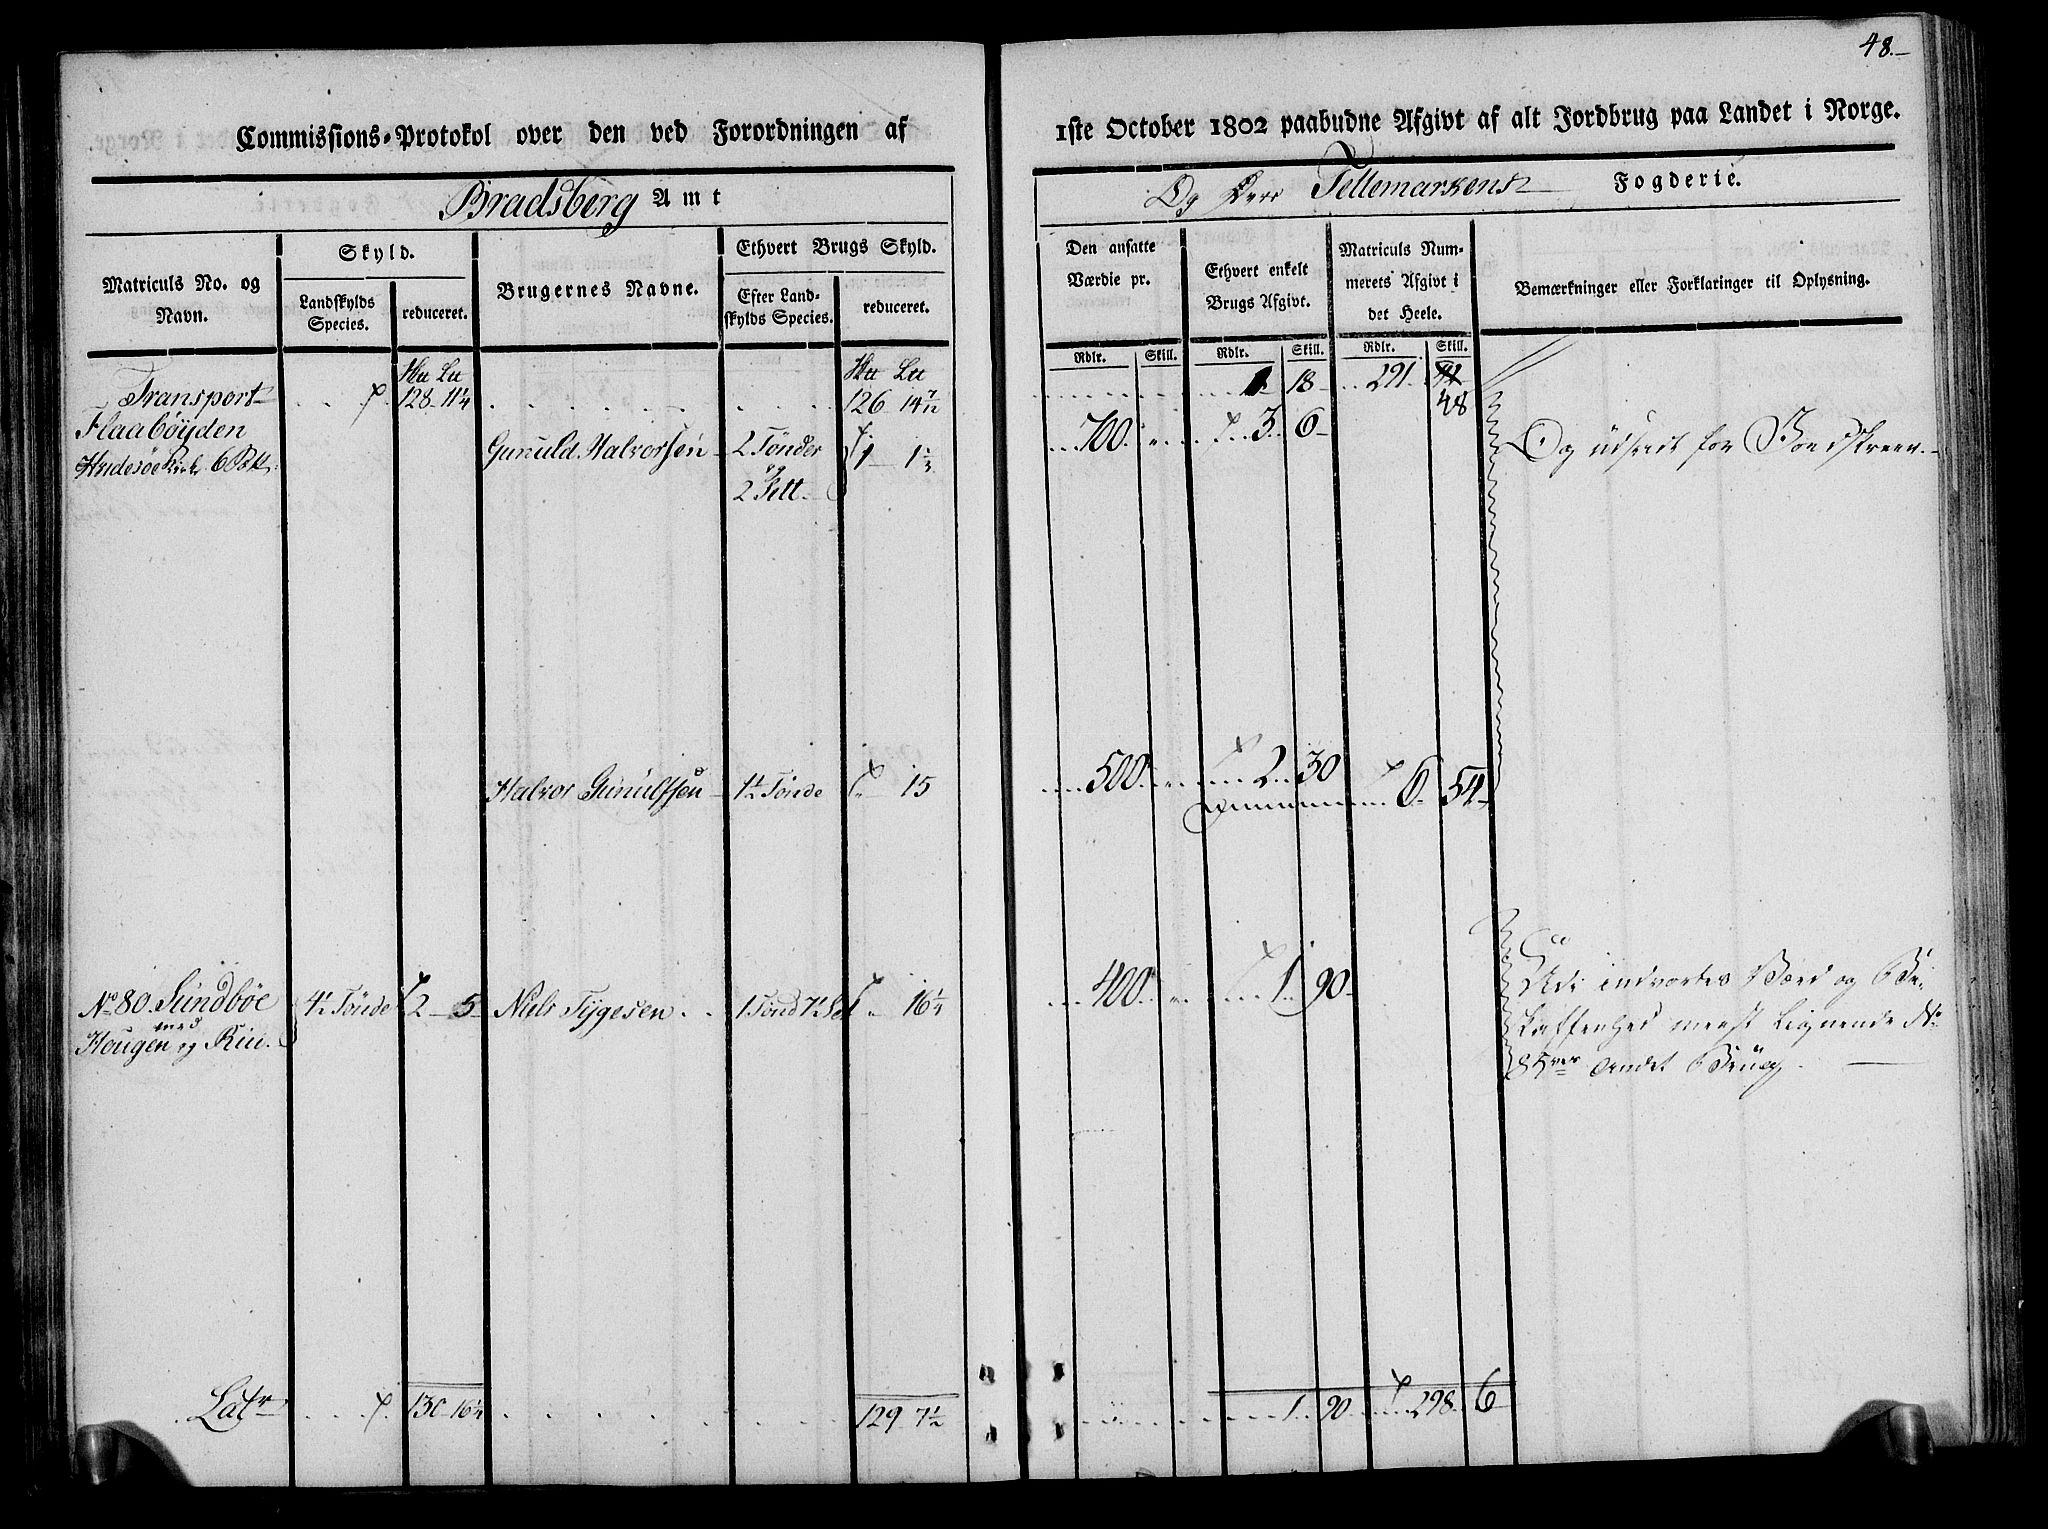 48.
Commissions-Protokol over den ved Forordningen af 1ste October 1802 paabudne Afgivt af alt Jordbrug paa Landet i Norge.
Bradsberg Amt
Og Tellemarkens Fogderie.
Matriculs No. og Navn.
Skyld.
Landskylds Species.
reduceret.
Brugernes Navne.
Ethvert Brugs Skyld.
Efter Landskylds Species.
reduceret.
Den ansatte Værdie pr.
Ethvert enkelt Brugs Afgivt.
Matriculs Nummerets Afgivt i det Heele.
Bemærkninger eller Forklaringer til Oplysning.
Rdlr. Skill. Rdlr. Skill. Rdlr. Skill.
Transport 128 11¼ 126 14 7/12 1 18 291 48
Flaabøyden
6 Gunuld Halvorsen 2 Tønder og 2 Sett. 1 1½ 700 3 6 Og udseet for
Halvor Gunulfsen 1½ Tønde 15 500 2 30 6 54
No 80 Sundbøe med Hougen og Rui. 4½ Tønde 2 5 Niels Tygesen 16¼ 400 1 90
indvortes Værd og Beskaffenhed meest lignende No 85 andet Brug.
Latr 130 16¼ 129 7½ 1 90 298 6